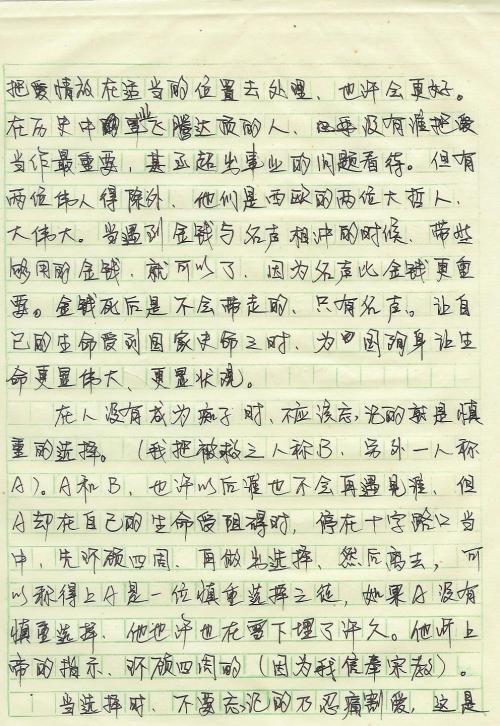 把爱情放在适当的位置去处理、也许会更好。
在历史中飞腾达顶的人、没有谁把爱
当作最重要，甚至超出事业的问题看待。但有
两位伟人得除外、他们是西欧的两位大哲人、
大伟大。当遇到金钱与名声相冲的时候、带些
够用的金钱、就可以了、因为名声比金钱更重
要。金钱死后是不会带走的、只有名声。让自
己的生命受到国家史命之时、为国殉身让生
命更显伟大、更显状况。
在人没有成为痴子时、不应该忘记的就是慎
重的选择。（我把被救之人称B、另外一人称
A）。A和B、也许以后谁也不会再遇见谁、但
A却在自己的生命受阻碍时、停在十字路口当
中、先环顾四周、再做出选择、然后离去，可
以称得上A是一位慎重选择之徒，如果A没有
慎重选择、他也许也在雪下埋了许久。他听上
帝的指示、环顾四周的（因为我信奉宗教）。
当选择时、不要忘记的乃忍痛割爱，这是